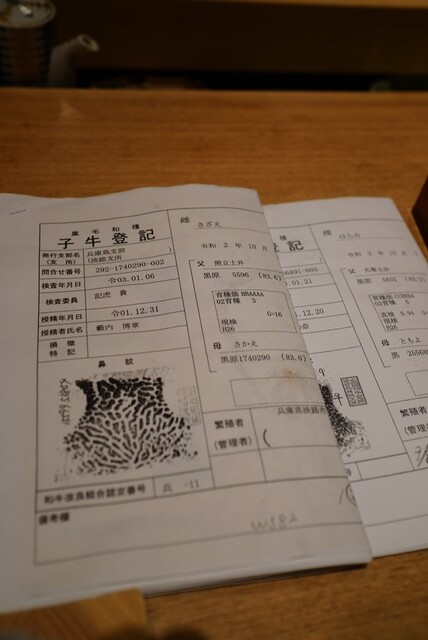 黒毛和種
子牛登記
発行支部名
(支所)
兵庫県支部
(淡路支所)
問合せ番号
292-1740290-002
検査年月日
令03.01.06
検査委員
記虎 貴
授精年月日
令01.12.31
授精者氏名
藪内 博章
損徴
特記
鼻紋
和牛改良組合認定番号
兵 -11
備考欄
W582
雌
さざえ
令和 2 年 10 月
父
照立土井
黒原 5596 (83.6)
育種価 BBAAAA
02育種 3
G=16
現検
H26
母
さかえ
黒原1740290 (83.6)
繁殖者
(管理者)
兵庫県淡路市
記
雌
はちみ
令和 2 年 10 月
父
黒原 5602
育種価
02育種
現検
H26
母
ともよ
黒
繁殖者
(管理者)